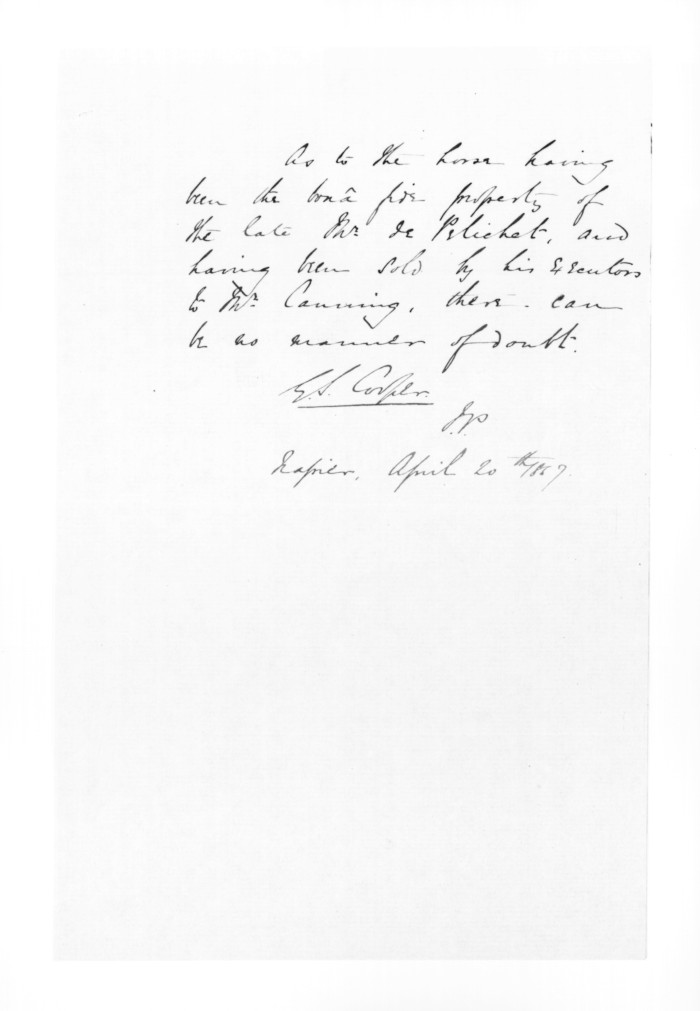 As to the horse having
been the bonâ fide property of
the late Mr. de Pelichet, and
having been sold by his Executors
to Mr. Canning, there can
be no manner of doubt.
G.S. Cooper.
J.P.
Napier, April 20th 1867.